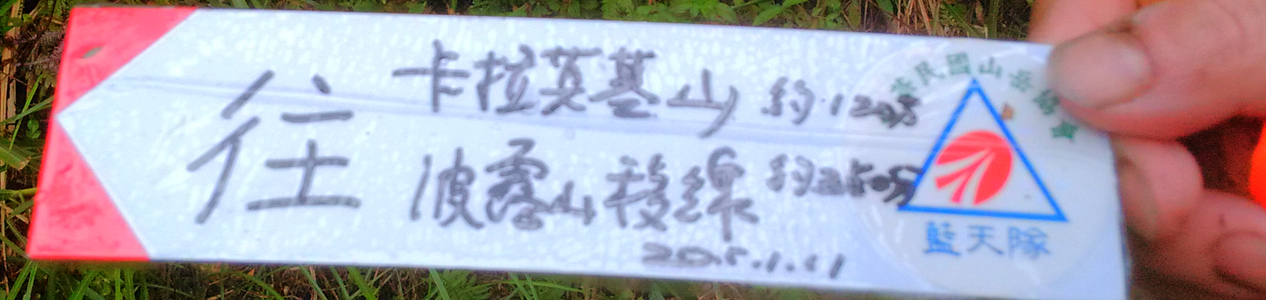 往
卡拉莫基山 約120分
波露山稜線 約250分
2015.1.11
華民國山岳協會
藍天隊